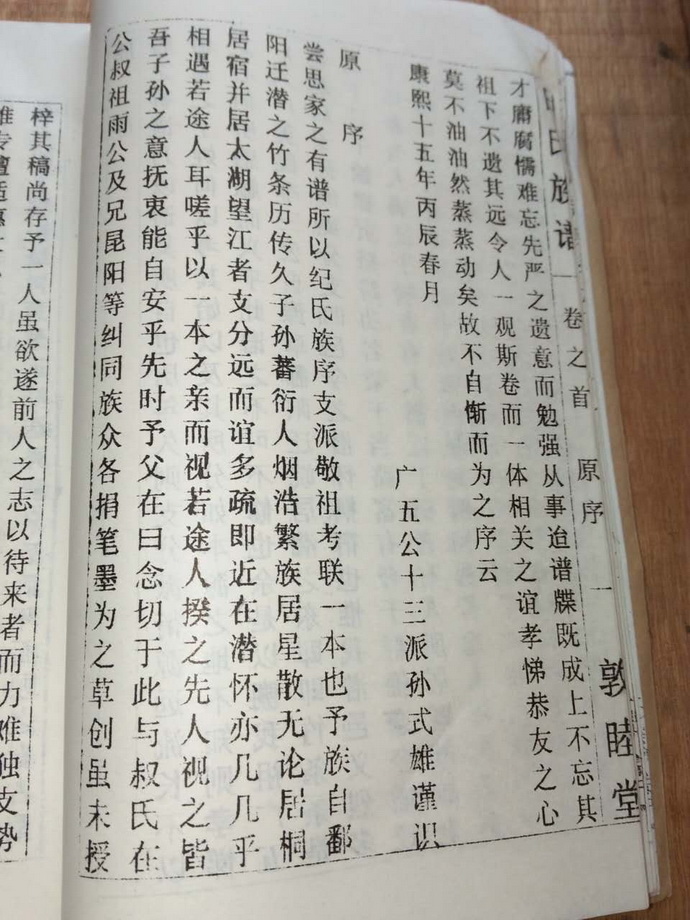 氏族谱 卷之首 原序 一 敦睦堂
才庸腐懦难忘先严之遗意而勉强从事迨谱牒既成上不忘其
祖下不遗其远令人一观斯卷而一体相关之谊孝悌恭友之心
莫不油油然蒸蒸动矣故不自惭而为之序云
广五公十三派孙式雄谨识
康熙十五年丙辰春月
原序
尝思家之有谱所以纪氏族序支派敬祖考联一本也予族自鄱
阳迁潜之竹条历传久子孙蕃衍人烟浩繁族居星散无论居桐
居宿并居太湖望江者支分远而谊多疏即近在潜怀亦几几乎
相遇若途人耳嗟乎以一本之亲而视若途人揆之先人视之皆
吾子孙之意抚衷能自安乎先时予父在日念切于此与叔氏在
公叔祖雨公及兄昆阳等纠同族众各捐笔墨为之草创虽未授
梓其稿尚存予一人虽欲遂前人之志以待来者而力难独支势